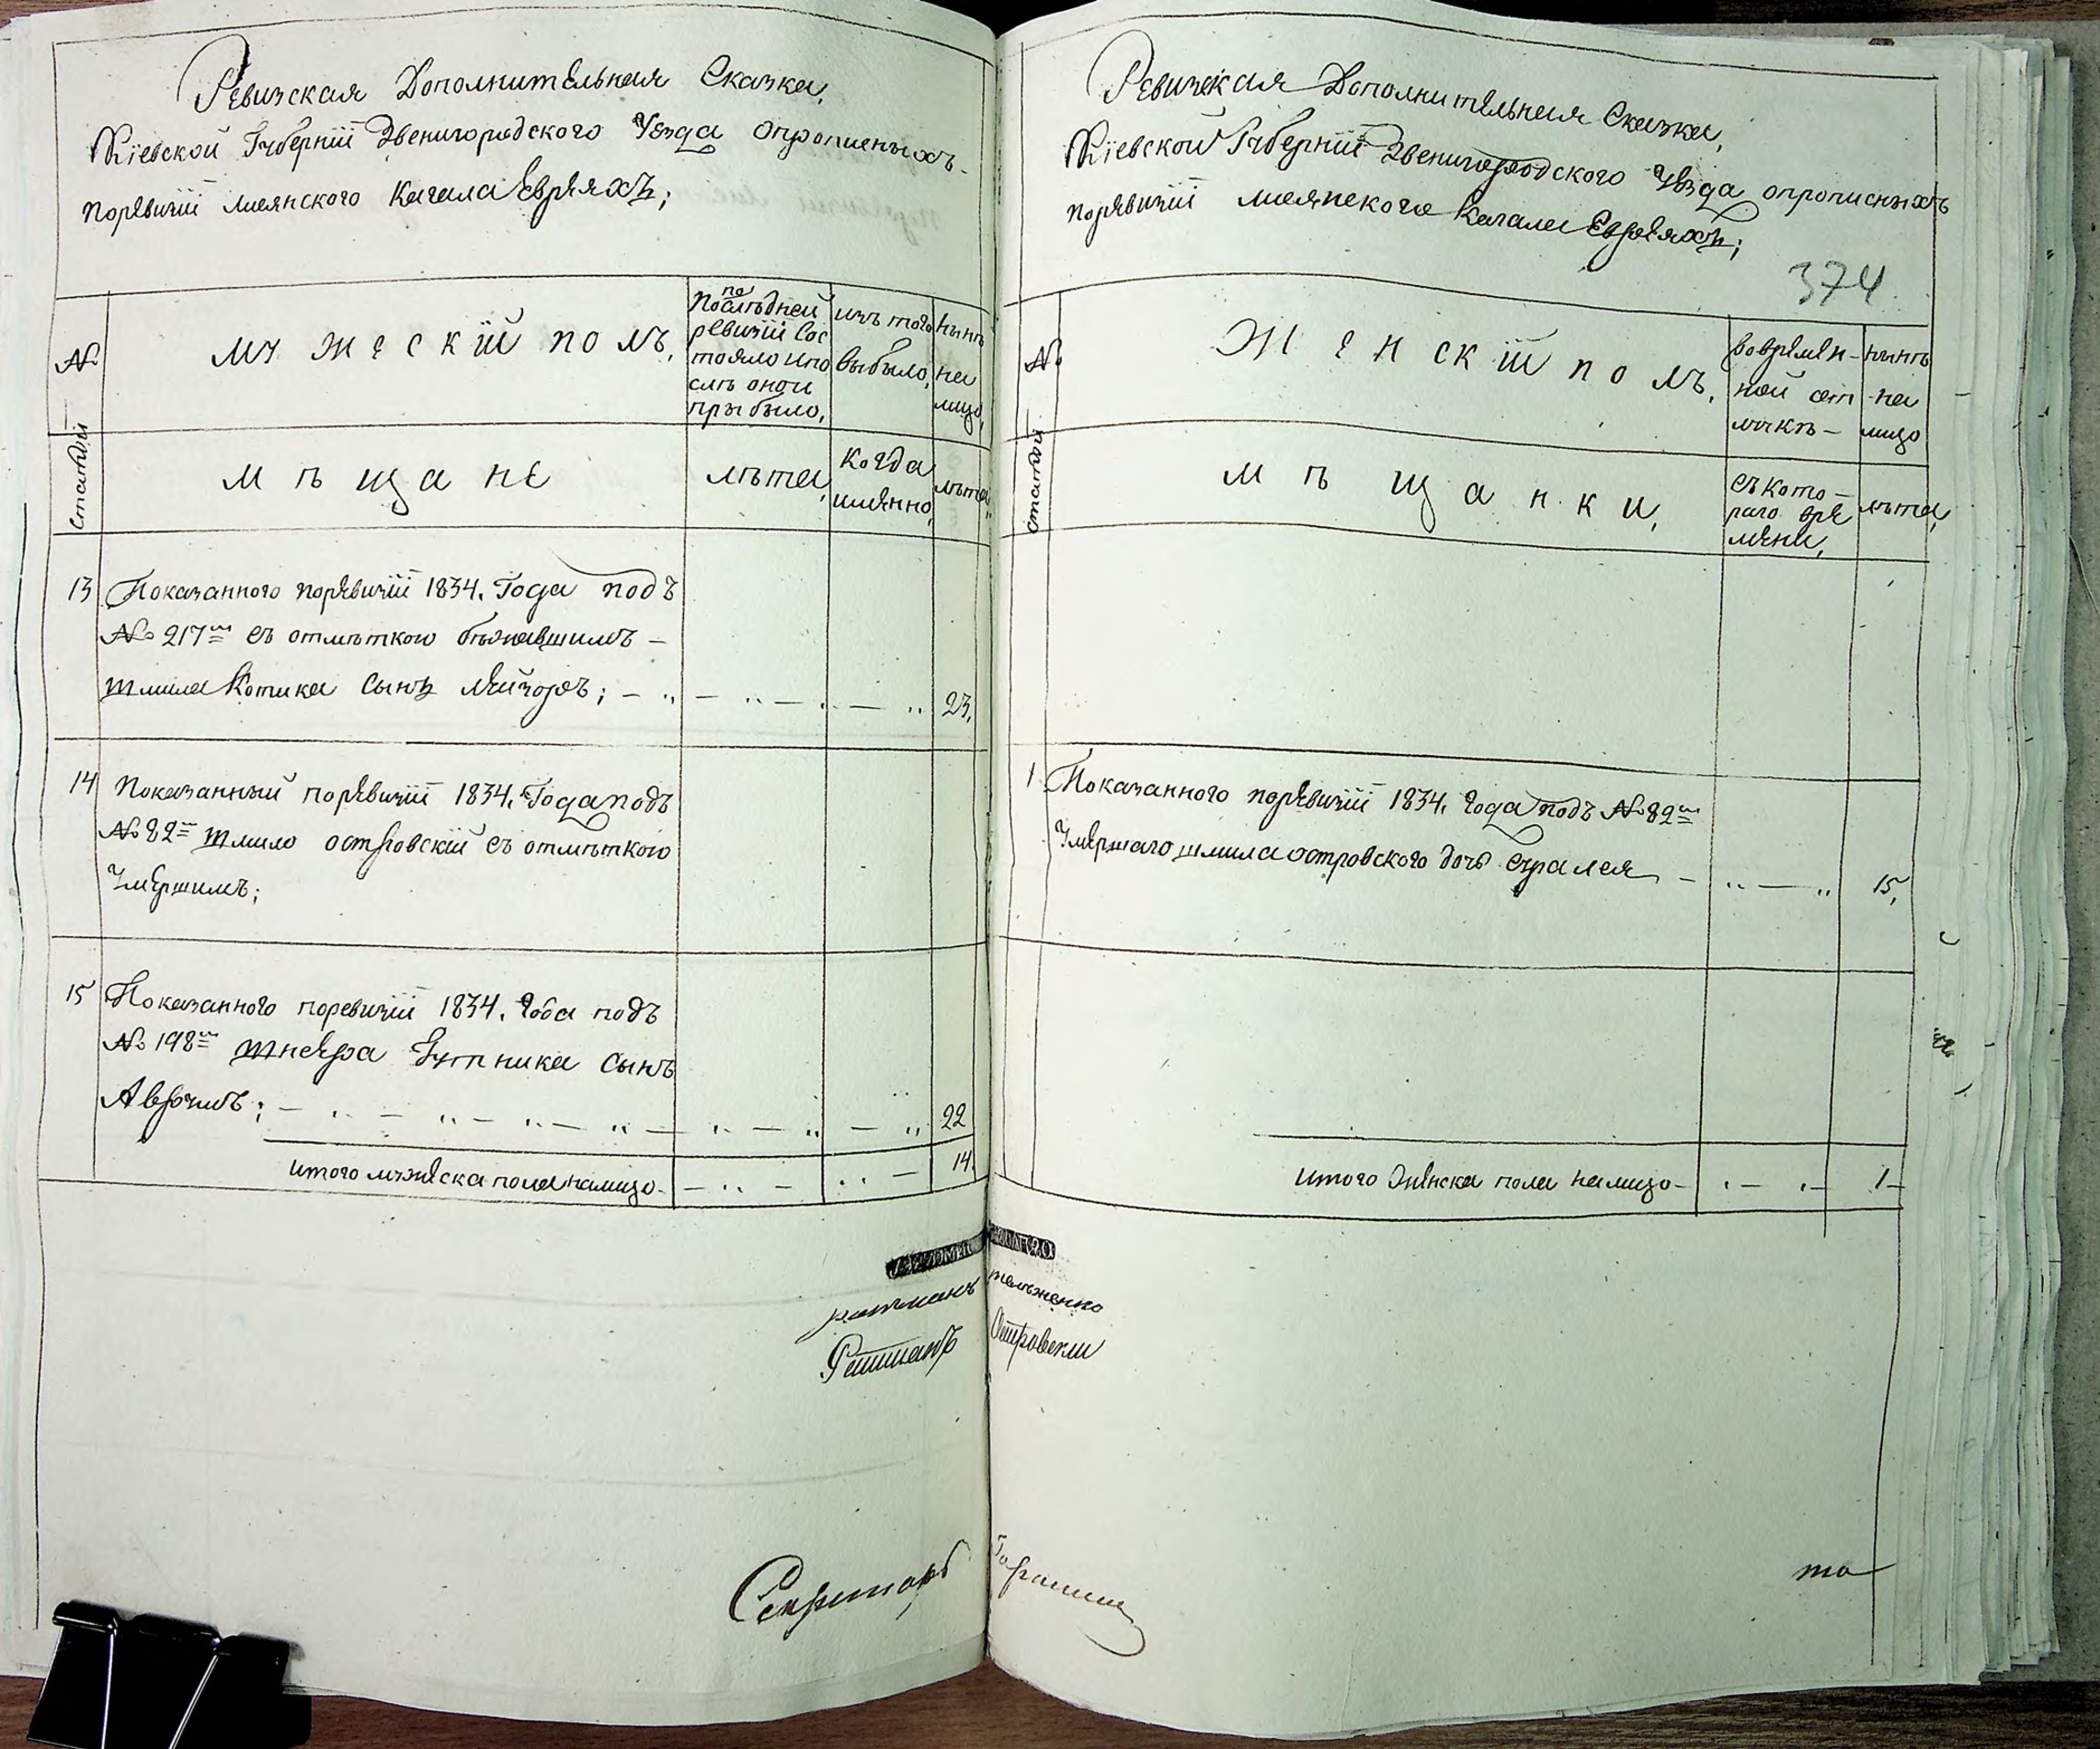 Ревизская Дополнительная Сказка,
Кіевской Губерніи Звенигородского Уезда опрописныхъ
поревизіи Лисянского Кагала Евреяхъ;
№
Статьи
мужескій полъ,
по последней ревизіи состояло и после оной прибыло,
изъ того выбыло,
ныне на лицо
мъщане
лъта,
когда имянно,
лъта,
13 Показанного поревизіи 1834. Года подъ
№ 217м съ отмъткою бъжавшимъ –
Шмила Котика сынъ Мейзоръ; – 23,
14 Показанный поревизіи 1834. Года подъ
№ 82м Шмило островскій съ отмъткою
Умершимъ;
15 Показанного поревизіи 1834. года подъ
№ 198м Шнеера Гутника сынъ
Аврумъ; – 22
итого мужеска пола налицо – 14.
Ревизская Дополнительная Сказка,
Кіевской Губерніи Звенигородского Уезда опрописныхъ
поревизіи лисянского Кагала Евреяхъ;
374
№
статьи
Женскій полъ,
во времянной отлучкъ –
нынъ на лицо
мъщанки,
съ котораго времени,
лъта,
1 Показанного поревизіи 1834. года подъ № 82м
Умершаго шмила островского дочь суралея – 15,
итого Женска пола налицо – 1 –
ратманъ
Ратманъ Островски
Секретарь
та